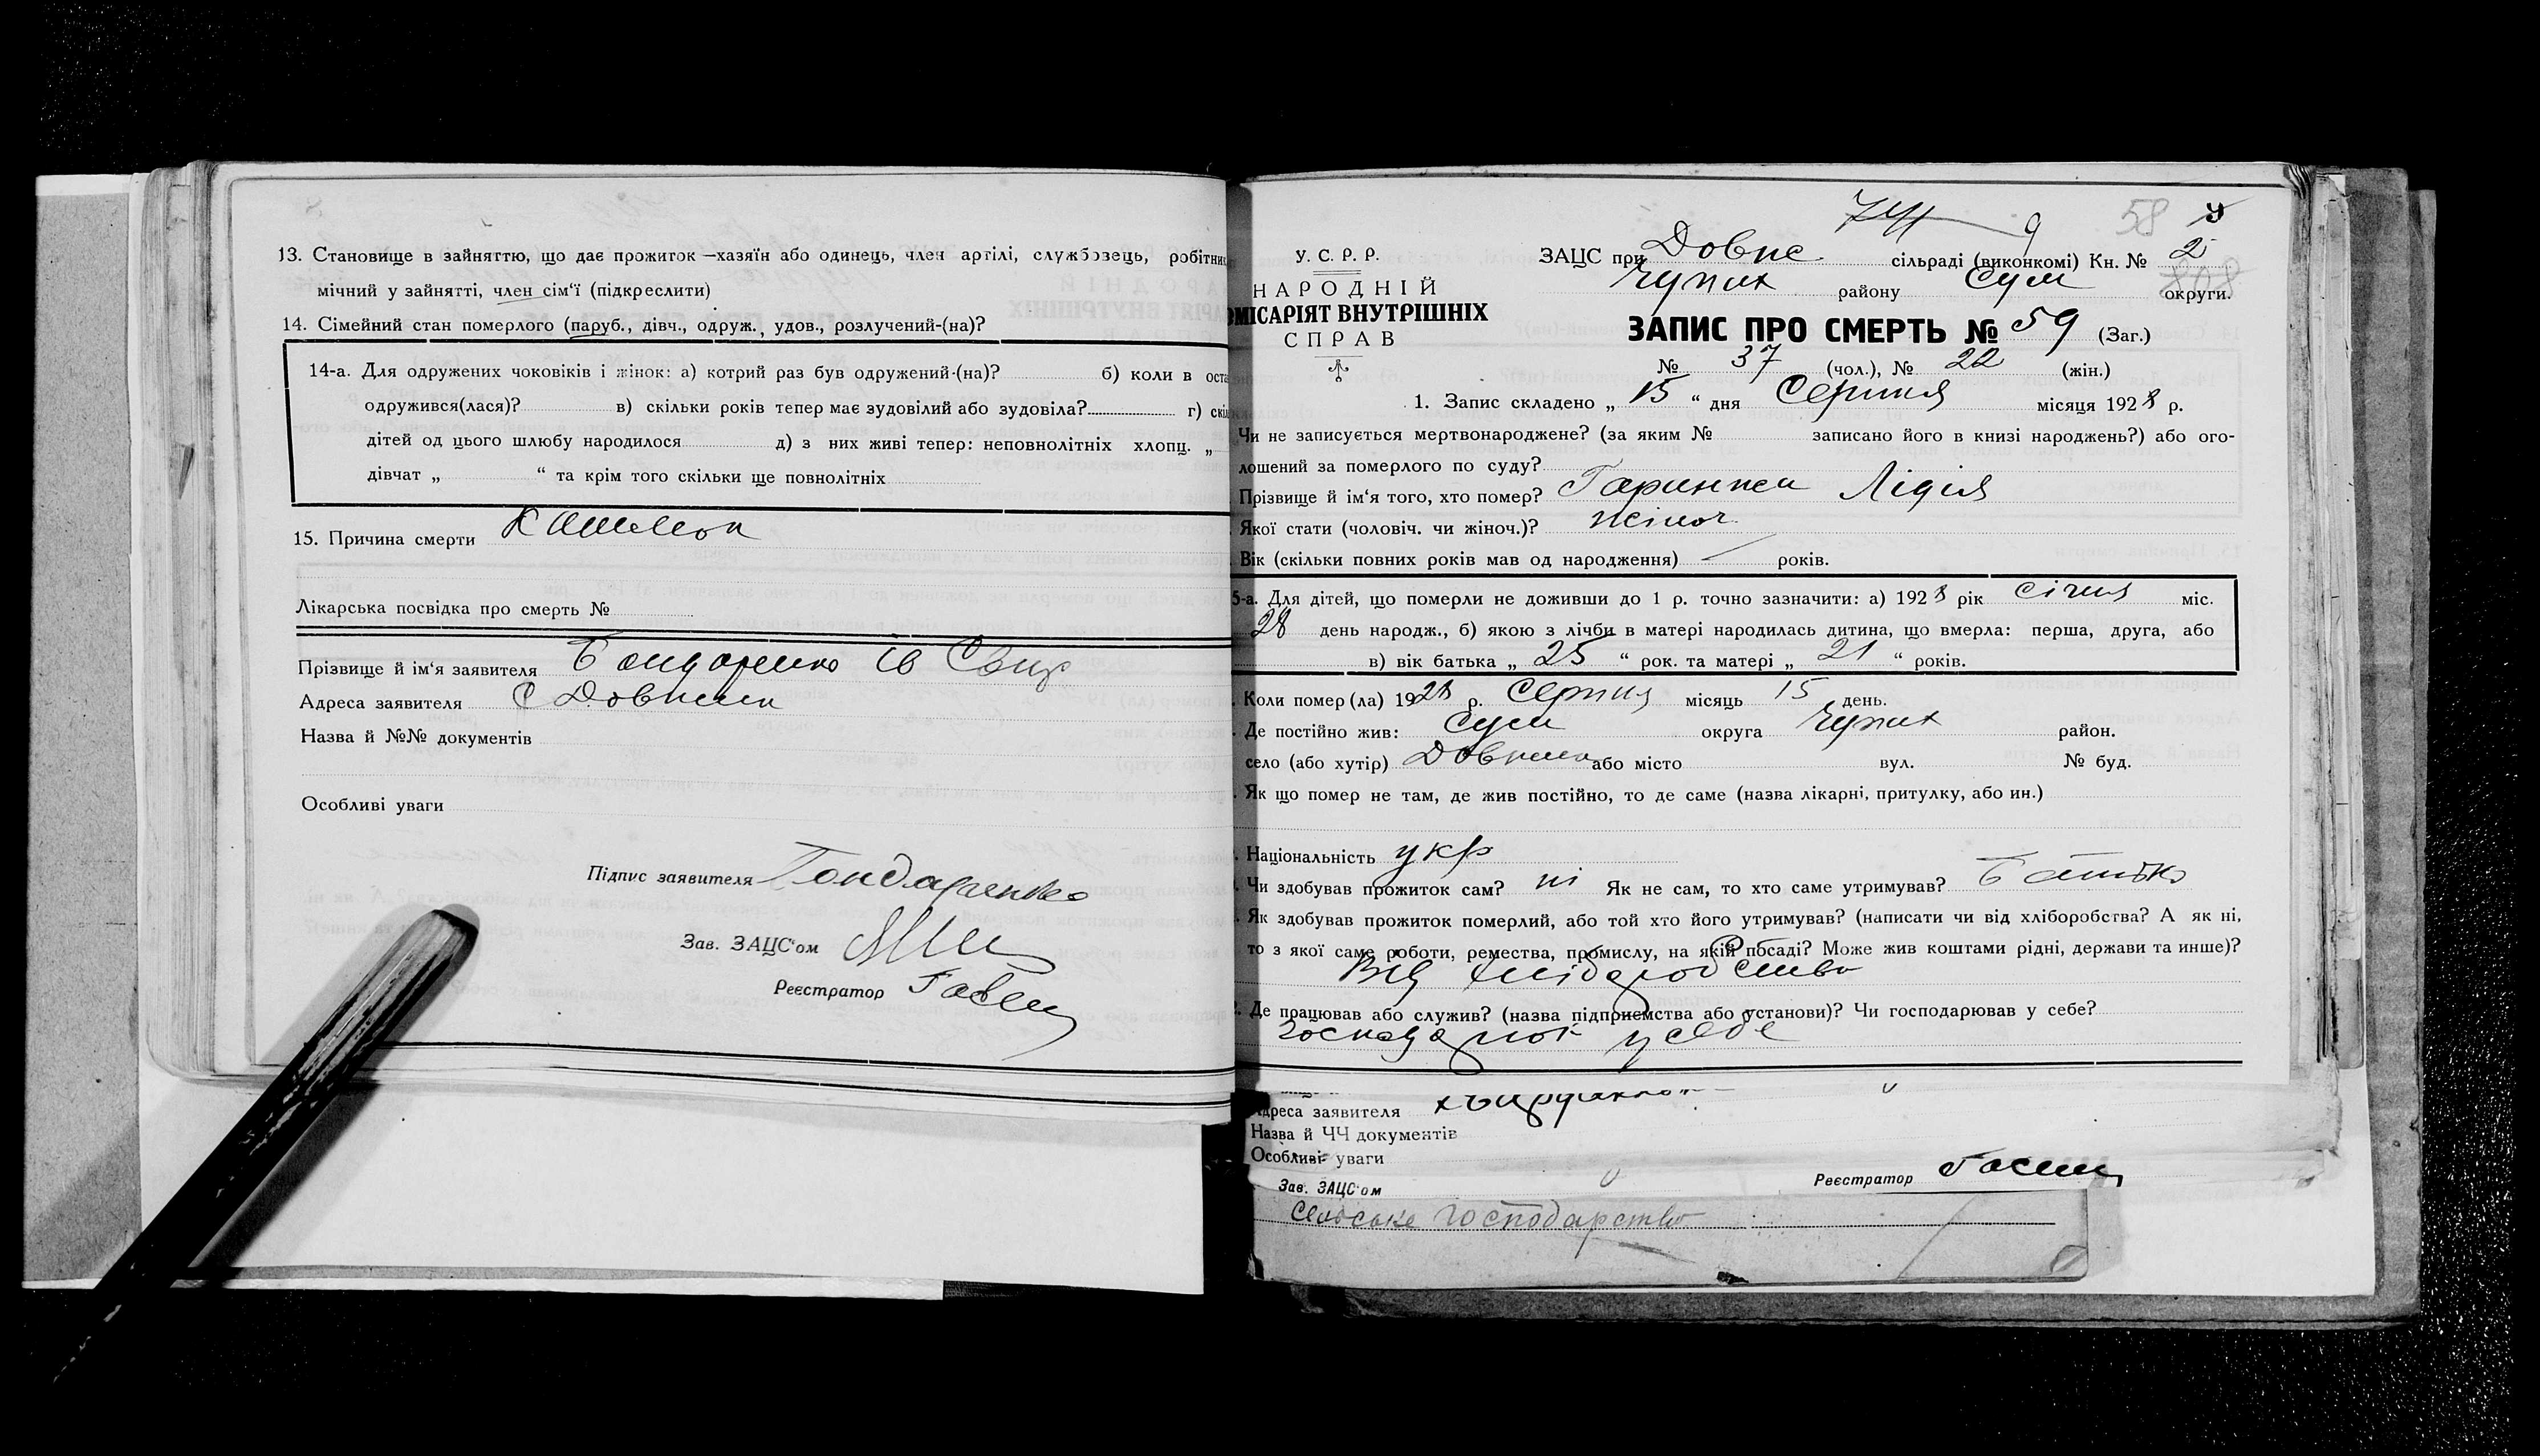 13. Становище в зайняттю, що дає прожиток —хазяїн або одинець, член артілі, службовець, робітни
мічний у зайнятті, член сім'ї (підкреслити)
14. Сімейний стан померлого (паруб., дівч., одруж., удов., розлучений-(на)?
14-а. Для одружених чоковіків і жінок: а) котрий раз був одружений-(на)? б) коли в оста
одружився(лася)? в) скільки років тепер має зудовілий або зудовіла? г) скі
дітей од цього шлюбу народилося д) з них живі тепер: неповнолітніх хлопц. „
дівчат „ “ та крім того скільки ще повнолітніх
15. Причина смерти Кашлюк
Лікарська посвідка про смерть №
Прізвище й ім'я заявителя Бондаренко Ів
Адреса заявителя С Довжик
Назва й №№ документів
Особливі уваги
Підпис заявителя Бондаренко
Зав. ЗАЦС'ом
Реєстратор
58
9
У. С. Р. Р.
НАРОДНІЙ
МІСАРІЯТ ВНУТРІШНІХ
СПРАВ
ЗАЦС при Довж сільраді (виконкомі) Кн. № 2
Чупах району Сум округи.
808
ЗАПИС ПРО СМЕРТЬ № 59 (Заг.)
№ 37 (чол.), № 22 (жін.)
1. Запис складено „ 15 “ дня Серпня місяця 1928 р.
Чи не записується мертвонароджене? (за яким № записано його в книзі народжень?) або ого-
лошений за померлого по суду?
Прізвище й ім'я того, хто помер? Гаринжа Лідія
Якої стати (чоловіч. чи жіноч.)? жіноч
Вік (скільки повних років мав од народження) — років.
5-а. Для дітей, що померли не доживши до 1 р. точно зазначити: а) 1928 рік Січня міс.
28 день народж., б) якою з лічби в матері народилась дитина, що вмерла: перша, друга, або
в) вік батька „ 25 “ рок. та матері „ 21 “ років.
Коли помер (ла) 1928 р. Серпня місяць 15 день.
Де постійно жив: Сум округа Чупах район.
село (або хутір) Довжик або місто вул. № буд.
Як що помер не там, де жив постійно, то де саме (назва лікарні, притулку, або ин.)
Національність укр
Чи здобував прожиток сам? ні Як не сам, то хто саме утримував? Батько
Як здобував прожиток померлий, або той хто його утримував? (написати чи від хліборобства? А як ні,
то з якої саме роботи, ремества, промислу, на якій посаді? Може жив коштами рідні, держави та инше)?
Від хліборобства
Де працював або служив? (назва підприємства або установи)? Чи господарював у себе?
господарює у себе
Адреса заявителя
Назва й ЧЧ документів
Особливі уваги
Зав. ЗАЦС'ом Реєстратор
Сельське господарство